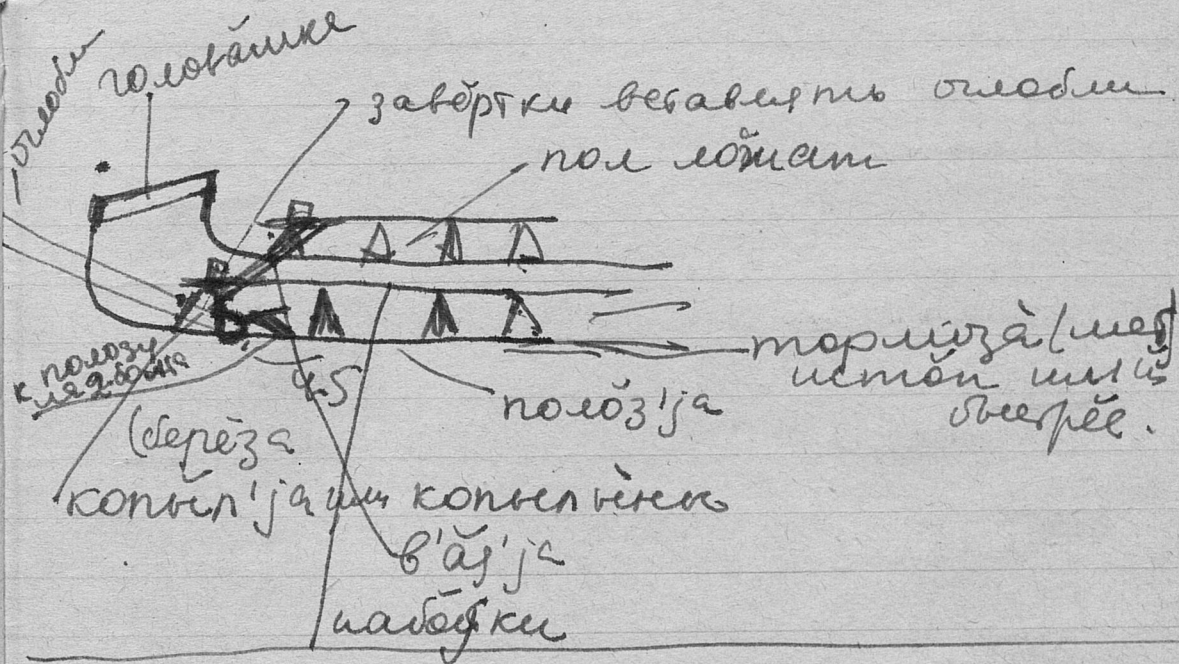 оглобли
голова́шка
заве́ртки вставлять оглобли
пол ло́жат
тормоза́ (мет
чтоп шли
быстре́е.
к полозу
4-5
поло́з'jа
(берёза
копы́л'jа или копылы́ны
в'а́з'jа
набо́йки